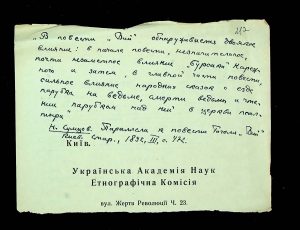 217
"В повести "Вий" обнаруживается двоякое
влияние: в начале повести, незначительное,
почти незаметное влияние "Бурсака" Нареж-
ного и затем, в главной части повести,
сильное влияние народных сказок о езде
парубка на ведьме, смерти ведьмы и чте-
нии парубком над ней в церкви псал-
тыря"
Н. Сумцов. Параллели к повести Гоголя "Вий"
Киев. стар., 1892, III, с. 472.
Київ.
Українська Академія Наук
Етнографічна Комісія
вул. Жертв Революції Ч. 23.